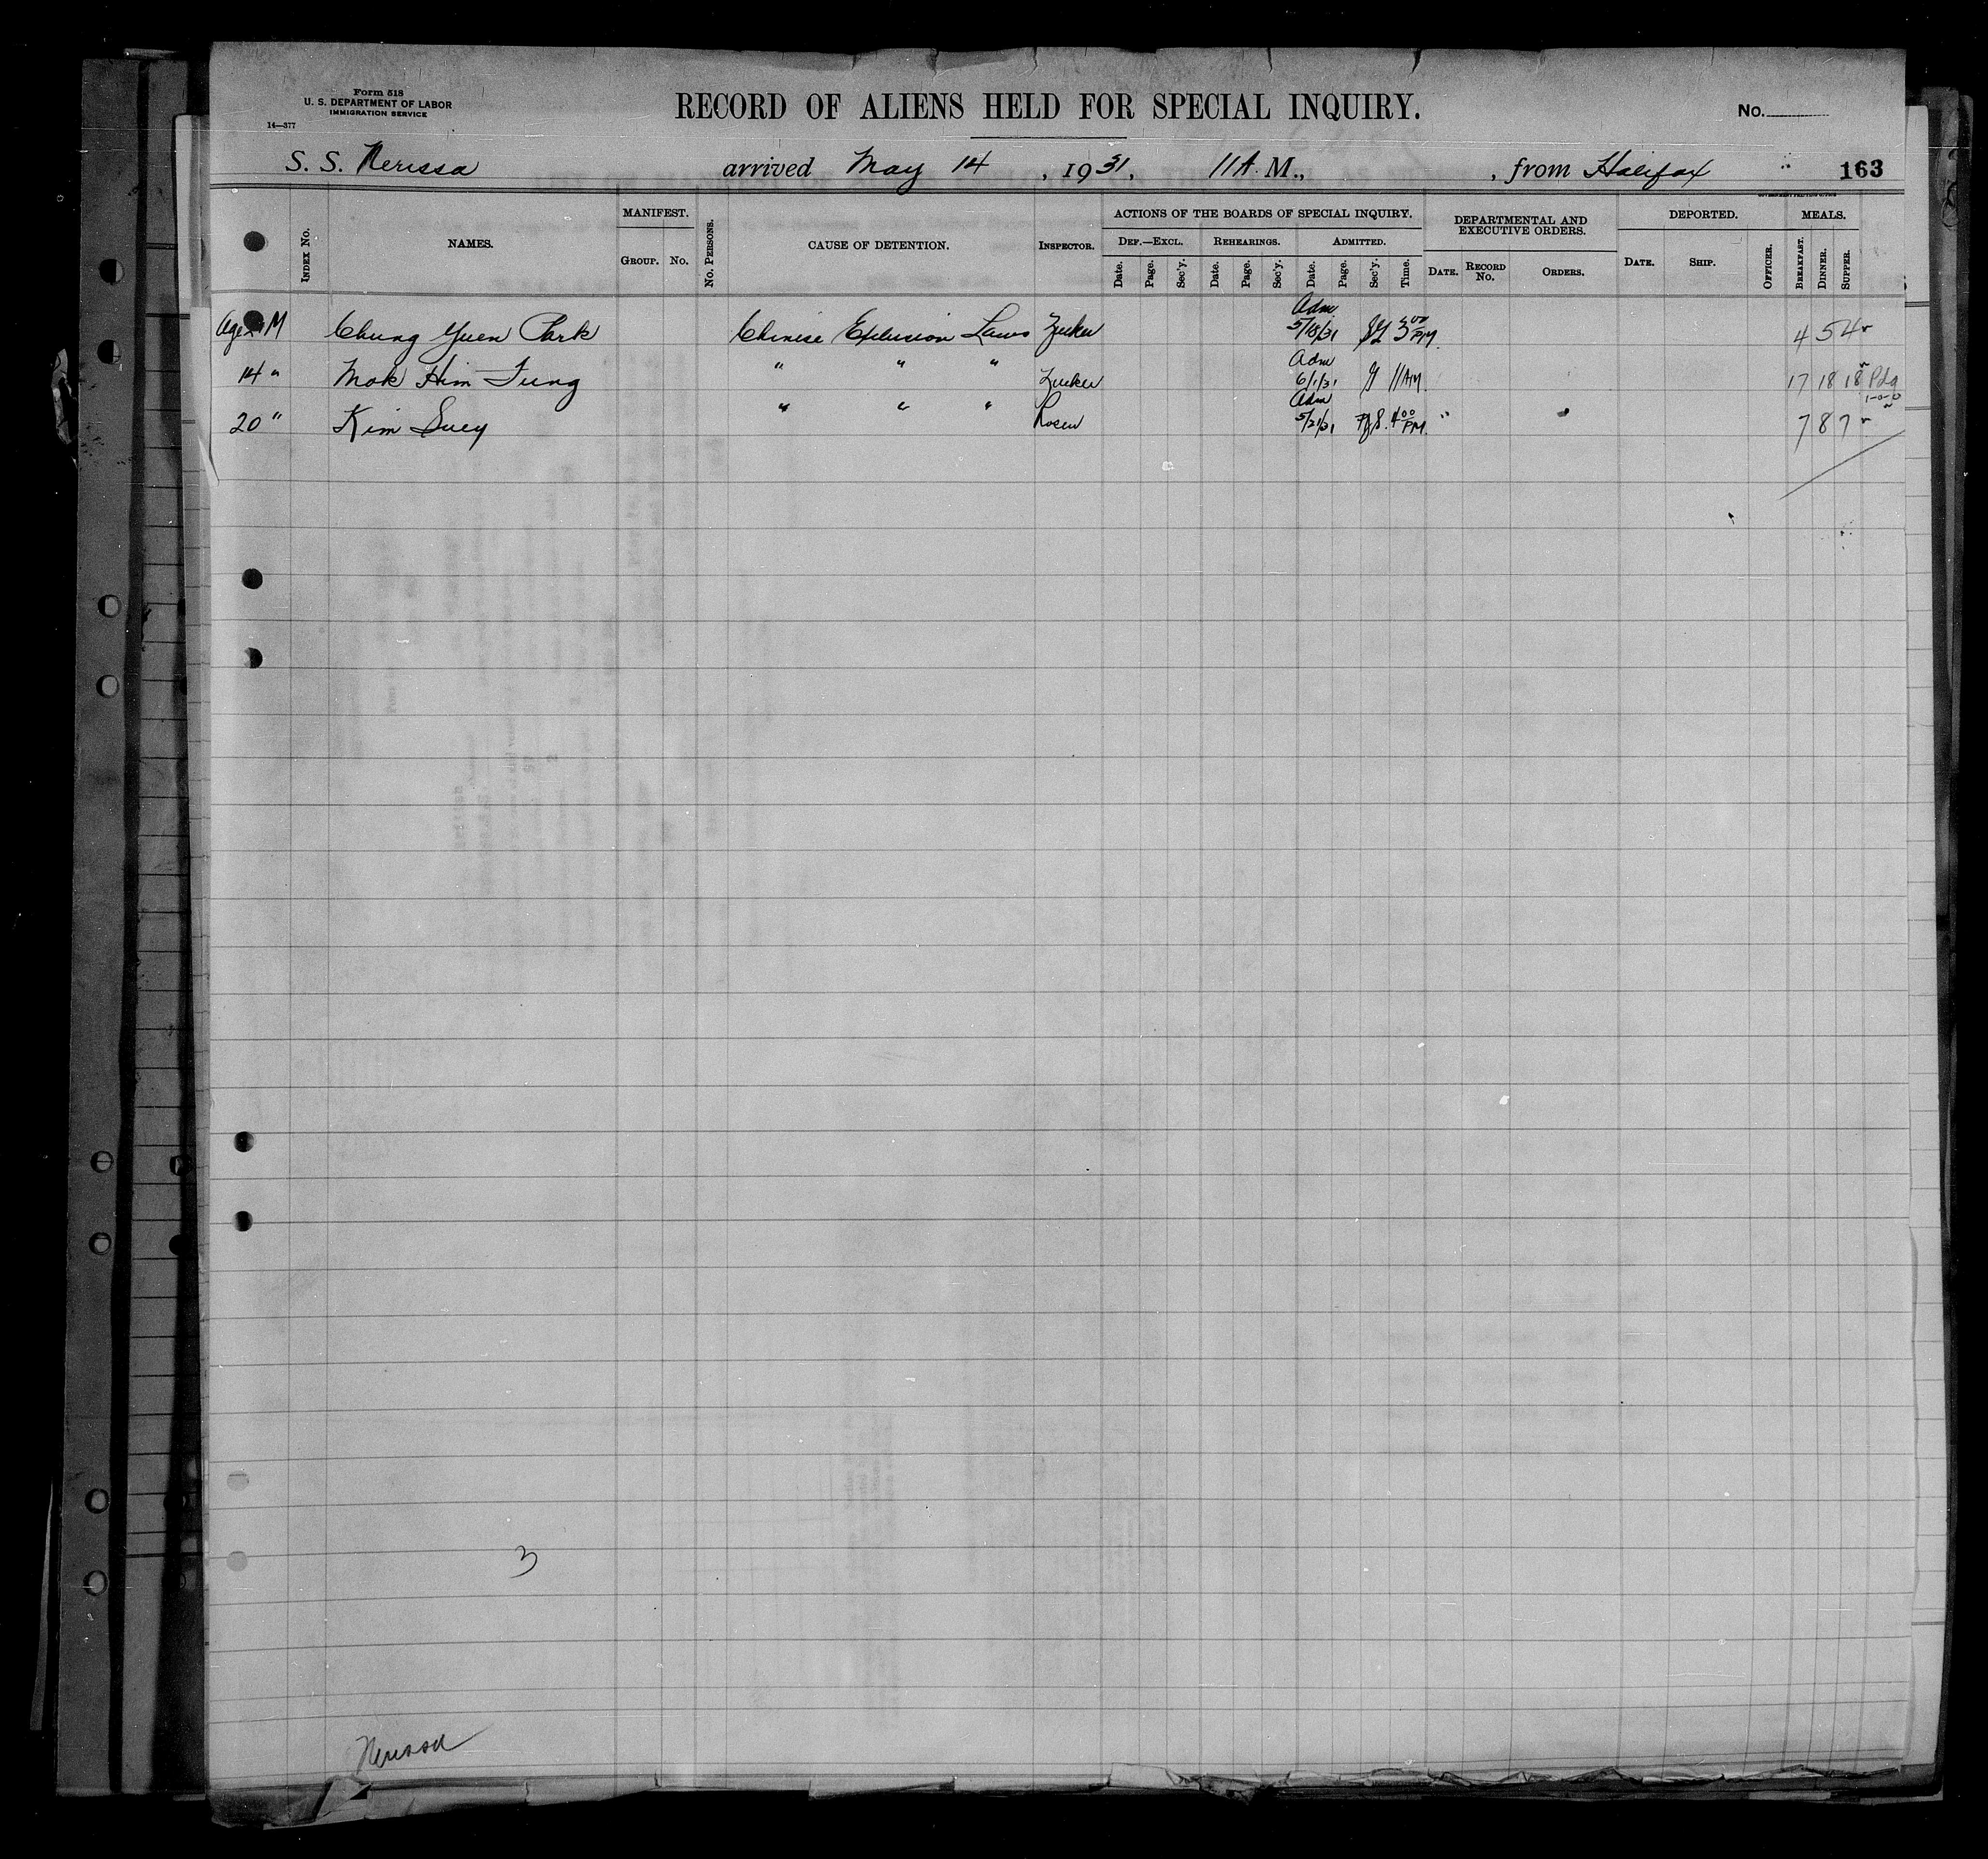 Form 518
U. S. DEPARTMENT OF LABOR
IMMIGRATION SERVICE
14—377
RECORD OF ALIENS HELD FOR SPECIAL INQUIRY.
No.
S. S. Nerissa arrived May 14, 1931, 11 A. M., , from Halifax 163
INDEX No. NAMES. MANIFEST. GROUP. No. No. PERSONS. CAUSE OF DETENTION. INSPECTOR. ACTIONS OF THE BOARDS OF SPECIAL INQUIRY. DEF.—EXCL. Date. Page. Sec'y. REHEARINGS. Date. Page. Sec'y. ADMITTED. Date. Page. Sec'y. Time. DEPARTMENTAL AND EXECUTIVE ORDERS. DATE. RECORD No. ORDERS. DEPORTED. DATE. SHIP. OFFICER. MEALS. BREAKFAST. DINNER. SUPPER.
Age M Chung Yuen Park Chinese Exclusion Laws Zucker Adm 5/18/31 3 00 PM. 4 5 4
14 " Mok Him Fung " " " Zucker Adm 6/1/31 11 AM. 17 18 18
20 " Kim Suey " " " Rosen Adm 5/21/31 4 00 PM. " " 7 8 7
3
Nerissa